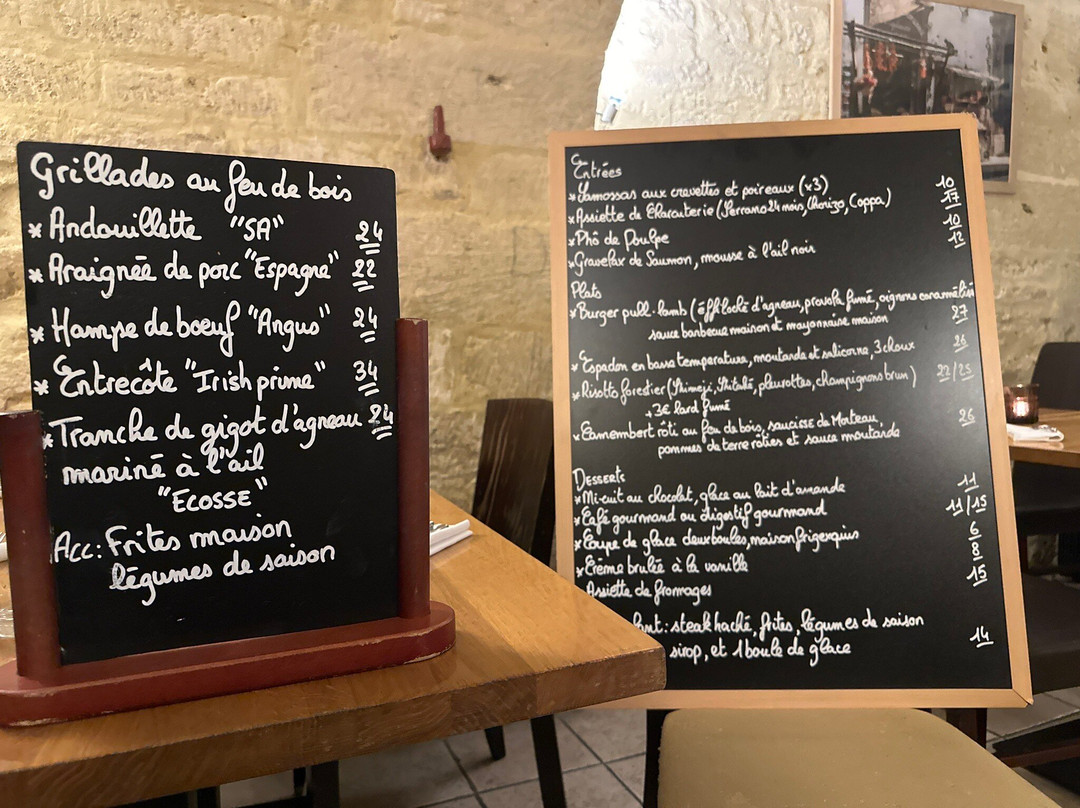 Grillades au feu de bois
* Andouillette "SA" 24
* Araignée de porc "Espagne" 22
* Hampe de boeuf "Angus" 24
* Entrecôte "Irish prime" 34
* Tranche de gigot d'agneau 24
mariné à l'ail
"ECOSSE"
Acc: Frites maison
légumes de saison
Entrées
* Samossas aux crevettes et poireaux (x3) 10
* Assiette de Charcuterie (Serrano 24 mois, Chorizo, Coppa) 17
* Phô de Poulpe 10
* Gravelax de Saumon, mousse à l'ail noir 12
Plats
* Burger pull-lamb (éffiloché d'agneau, provola fumé, oignons caramélisés
sauce barbecue maison et mayonnaise maison 27
* Espadon en basse temperature, moutarde et salicorne, 3 choux 26
* Risotto forestier (Shimeji, Shitaké, pleurottes, champignons brun) 22/25
+3€ lard fumé
* Camembert rôti au feu de bois, saucisse de Morteau, 26
pommes de terre rôties et sauce moutarde
Desserts
* Mi-cuit au chocolat, glace au lait d'amande 11
* Café gourmand ou digestif gourmand 11/15
* Coupe de glace deux boules, maison frigerquis 6
* Crème brulée à la vanille 8
Assiette de fromages 15
fant: steak haché, frites, légumes de saison
sirop, et 1 boule de glace 14